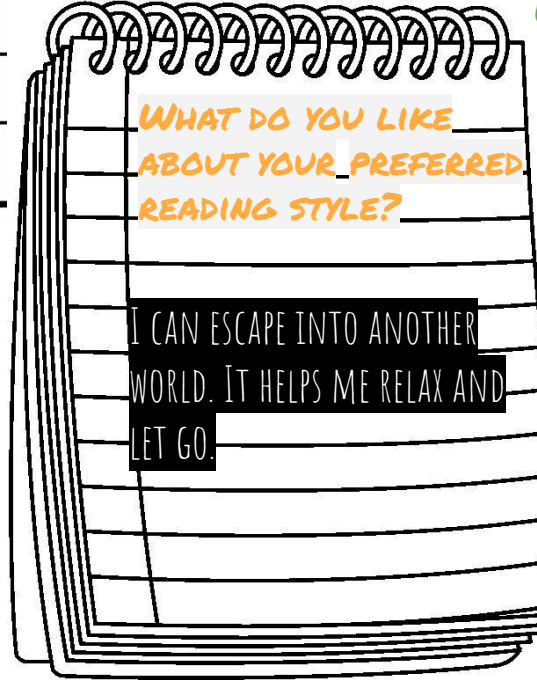 What do you like
about your preferred
reading style?
I can escape into another
world. It helps me relax and
let go.